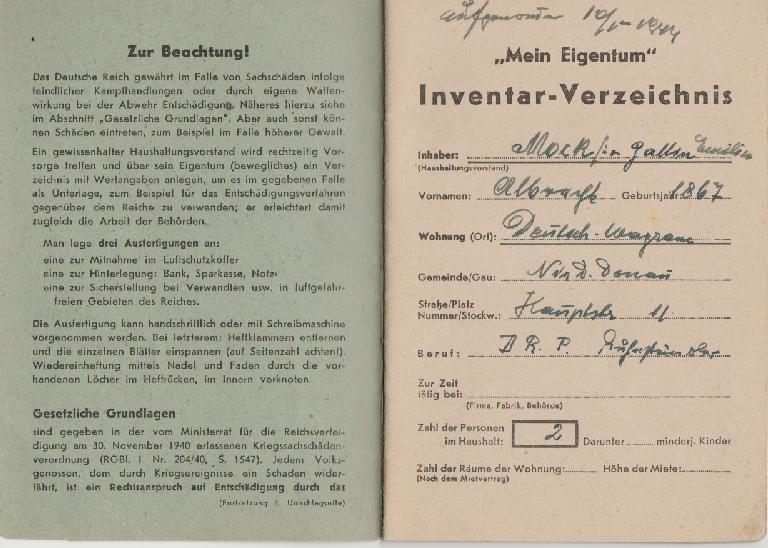 Zur Beachtung!
Das Deutsche Reich gewährt im Falle von Sachschäden infolge
feindlicher Kampfhandlungen oder durch eigene Waffen-
wirkung bei der Abwehr Entschädigung. Näheres hierzu siehe
im Abschnitt „Gesetzliche Grundlagen". Aber auch sonst kön-
nen Schäden eintreten, zum Beispiel im Falle höherer Gewalt.
Ein gewissenhafter Haushaltungsvorstand wird rechtzeitig Vor-
sorge treffen und über sein Eigentum (bewegliches) ein Ver-
zeichnis mit Wertangaben anlegen, um es im gegebenen Falle
als Unterlage, zum Beispiel für das Entschädigungsverfahren
gegenüber dem Reiche zu verwenden; er erleichtert damit
zugleich die Arbeit der Behörden.
Man lege drei Ausfertigungen an:
eine zur Mitnahme im Luftschutzkoffer
eine zur Hinterlegung: Bank, Sparkasse, Notar
eine zur Sicherstellung bei Verwandten usw. in luftgefahr-
freien Gebieten des Reiches.
Die Ausfertigung kann handschriftlich oder mit Schreibmaschine
vorgenommen werden. Bei letzterem: Heftklammern entfernen
und die einzelnen Blätter einspannen (auf Seitenzahl achten!).
Wiedereinheftung mittels Nadel und Faden durch die vor-
handenen Löcher im Heftrücken, im Innern verknoten.
Gesetzliche Grundlagen
sind gegeben in der vom Ministerrat für die Reichsvertei-
digung am 30. November 1940 erlassenen Kriegssachschäden-
verordnung (RGBl. I Nr. 204/40, S. 1547). Jedem Volks-
genossen, dem durch Kriegsereignisse ein Schaden wider-
fährt, ist ein Rechtsanspruch auf Entschädigung durch das
(Fortsetzung 3. Umschlagseite)
aufgenommen 10/5 1944
„Mein Eigentum"
Inventar-Verzeichnis
Inhaber: Mock
(Haushaltungsvorstand)
Vornamen: Albrecht Geburtsjahr: 1867
Wohnung (Ort): Deutsch-Wagram
Gemeinde/Gau: Nied. Donau
Straße/Platz
Nummer/Stockw.: Hauptstr 11
Beruf: D R. P.
Zur Zeit
tätig bei:
(Firma, Fabrik, Behörde)
Zahl der Personen
im Haushalt: 2 Darunter minderj. Kinder
Zahl der Räume der Wohnung: Höhe der Miete:
(Nach dem Mietvertrag)